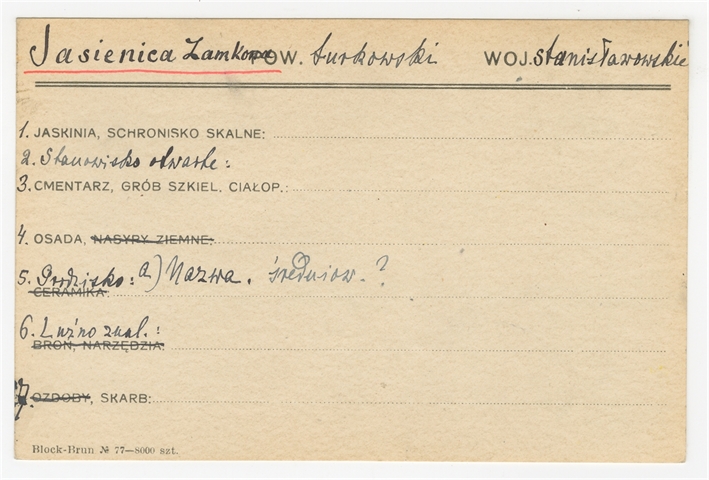 Jasienica Zamkowa POW. turkowski WOJ. stanisławowskie
1. JASKINIA, SCHRONISKO SKALNE:
2. Stanowisko otwarte:
3. CMENTARZ, GRÓB SZKIEL. CIAŁOP.:
4. OSADA, NASYPY ZIEMNE:
5. Grodzisko: a) Nazwa. średniow. ?
CERAMIKA:
6. Luźno znal.:
BROŃ, NARZĘDZIA:
7. OZDOBY, SKARB:
Block-Brun № 77—8000 szt.